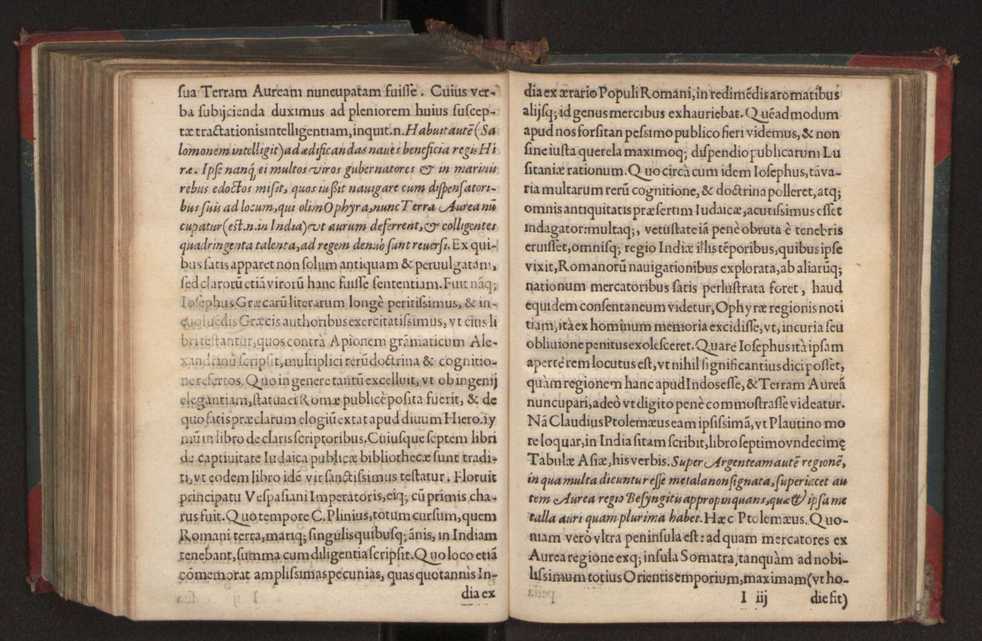 sua Terram Auream nuncupatam fuisse. Cuius ver-
ba subijcienda duximus ad pleniorem huius suscep-
tæ tractationis intelligentiam, inquit.n. Habuit autē (Sa
lomonem intelligit) ad ædificandas naues beneficia regis Hi
ræ. Ipse nanq; ei multos viros gubernatores & in marinis
rebus edoctos misit, quos iußit nauigare cum dispensatori-
bus suis ad locum, qui olim Ophyra, nunc Terra Aurea nū
cupatur (est.n.in India) vt aurum deferrent, & colligentes
quadringenta talenta, ad regem denuò sunt reuersi. Ex qui-
bus satis apparet non solum antiquam & peruulgatam,
sed clarorū etiā virorū hanc fuisse sententiam. Fuit nāq;
Iosephus Græcarū literarum longè peritissimus, & in-
euoluēdis Græcis authoribus exercitatissimus, vt eius li
bri testantur, quos contrà Apionem grāmaticum Ale-
xandrinū scripsit, multiplici rerū doctrina & cognitio-
ne refertos. Quo in genere tantū excelluit, vt ob ingenij
elegantiam, statua ei Romæ publicè posita fuerit, & de
quo satis præclarum elogiū extat apud diuum Hierony
mū in libro de claris scriptoribus. Cuiusque septem libri
de captiuitate Iudaica publicæ bibliothecæ sunt tradi-
ti, vt eodem libro idē vir sanctissimus testatur. Floruit
principatu Vespasiani Imperatoris, eiq; cū primis cha-
rus fuit. Quo tempore C. Plinius, totum cursum, quem
Romani terra, mariq; singulis quibusq; ānis, in Indiam
tenebant, summa cum diligentia scripsit. Quo loco etiā
cōmemorat amplissimas pecunias, quas quotannis In-
dia ex
dia ex ærario Populi Romani, in redimēdis aromatibus
alijsq; id genus mercibus exhauriebat. Quēadmodum
apud nos forsitan pessimo publico fieri videmus, & non
sine iusta querela maximoq; dispendio publicarum Lu
sitaniæ rationum. Quo circà cum idem Iosephus, tā va-
ria multarum rerū cognitione, & doctrina polleret, atq;
omnis antiquitatis præsertim Iudaicæ, acutissimus esset
indagator: multaq;, vetustate iā penè obruta è tenebris
eruisset, omnisq; regio Indiæ illis tēporibus, quibus ipse
vixit, Romanorū nauigationibus explorata, ab aliarūq;
nationum mercatoribus satis perlustrata foret, haud
equidem consentaneum videtur, Ophyræ regionis noti
tiam, ità ex hominum memoria excidisse, vt, incuria seu
obliuione penitus exolesceret. Quare Iosephus ità ipsam
apertè rem locutus est, vt nihil significantius dici posset,
quàm regionem hanc apud Indos esse, & Terram Aureā
nuncupari, adeò vt digito penè commostrasse videatur.
Nā Claudius Ptolemæus eam ipsissimā, vt Plautino mo
re loquar, in India sitam scribit, libro septimo vndecimę
Tabulæ Asiæ, his verbis. Super Argenteam autē regionē,
in qua multa dicuntur esse metala non signata, superiacet au
tem Aurea regio Besyngitis appropinquans, quæ & ipsa me
talla auri quam plurima habet. Hæc Ptolemæus. Quo-
niam verò vltra peninsula est: ad quam mercatores ex
Aurea regione exq; insula Somatra, tanquàm ad nobi-
lissimum totius Orientis emporium, maximam (vt ho-
I iij die fit)